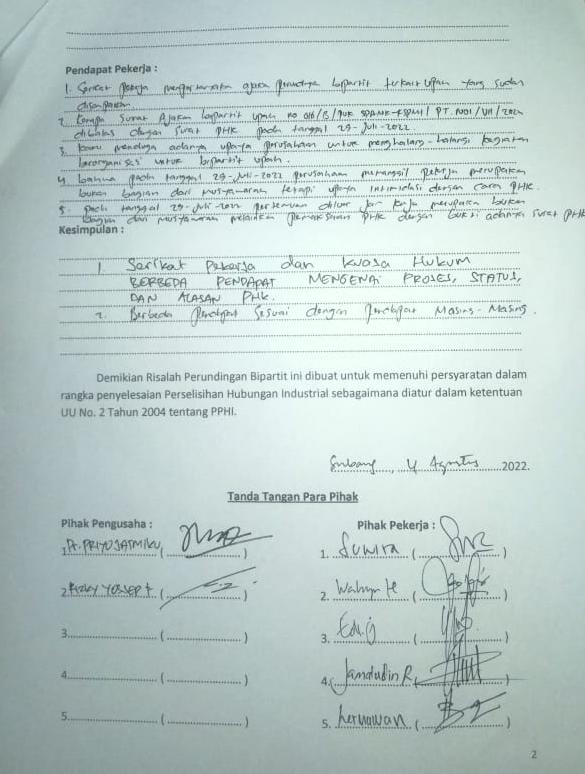 Pendapat Pekerja :
1. Serikat pekerja mempertanyakan perundingan bipartit terkait upah yang sudah
disampaikan
2. Surat Ajakan bipartit upah no PUK SPAMK-FSPMI / PT. / VII / 2022
dibalas dengan surat PHK pada tanggal 29-Juli-2022
3. kami menduga adanya upaya perusahaan untuk menghalang-halangi kegiatan
berorganisasi untuk bipartit upah.
4. bahwa pada tanggal 29-Juli-2022 perusahaan memanggil pekerja merupakan
bukan bagian dari musyawarah tetapi upaya intimidasi dengan cara PHK.
5. pada tanggal 29-Juli-2022 pertemuan diluar jam kerja merupakan bukan
bagian dari musyawarah melainkan pemaksaan PHK dengan bukti adanya surat PHK
Kesimpulan :
1. Serikat Pekerja dan Kuasa Hukum
BERBEDA PENDAPAT MENGENAI PROSES, STATUS,
DAN ALASAN PHK.
2. Berbeda Pendapat Sesuai dengan Pendapat Masing-Masing.
Demikian Risalah Perundingan Bipartit ini dibuat untuk memenuhi persyaratan dalam
rangka penyelesaian Perselisihan Hubungan Industrial sebagaimana diatur dalam ketentuan
UU No. 2 Tahun 2004 tentang PPHI.
Subang, 4 Agustus 2022.
Tanda Tangan Para Pihak
Pihak Pengusaha : Pihak Pekerja :
1. PRIYOJATMIKO ( ) 1. Suwira ( )
2. RIZKY YOSEP ( ) 2. Wahyu H ( )
3. ( ) 3. ( )
4. ( ) 4. Jamaludin R ( )
5. ( ) 5. hermawan ( )
2